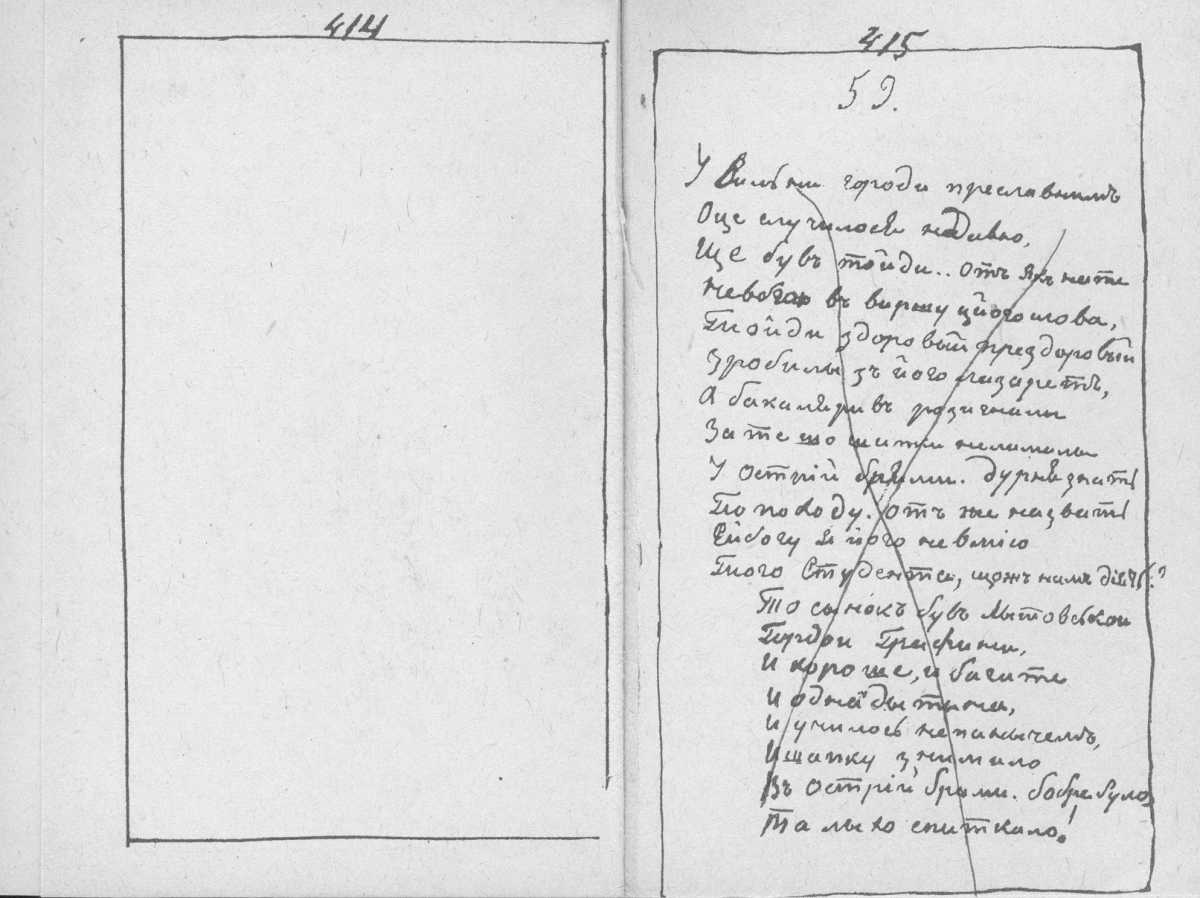 414
415
59.
У Вильни городи преславнимъ
Оце случилося недавно,
Ще бувъ тойди.. отъ якъ на те
въ виршу цёго слова,
Тойди здоровый прездоровый
Зробилы зъ його лазаретъ,
А бакалярівъ розигналы
За те що шапки не ламалы
У острій брами. Дурня знать
По походу. отъ же назвать
Ейбогу я його невмію
Того Студента, щожъ намъ діять?
То сынокъ бувъ Лытовськои
Гордои Графини,
И хороше, и багате
И одна дытына,
И училось не паничемъ,
И шапку знимало
Въ острій брами. добре було,
Та лыхо спиткало!